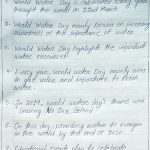 1. World Water Day is celebrated every year
through the world on 22nd March
2. World Water Day mainly focuses on increasing
awareness of the importance of water.
3. World Water Day highlights the important
water resources
4. Every year, World Water Day mainly aims
to give value and importance to fresh
water.
5. In 2019, world water day's theme was
"Leaving No One Behind"
6. On this day, providing water to everyone
in the world by the end of 2030.
7. Educational events take to celebrate